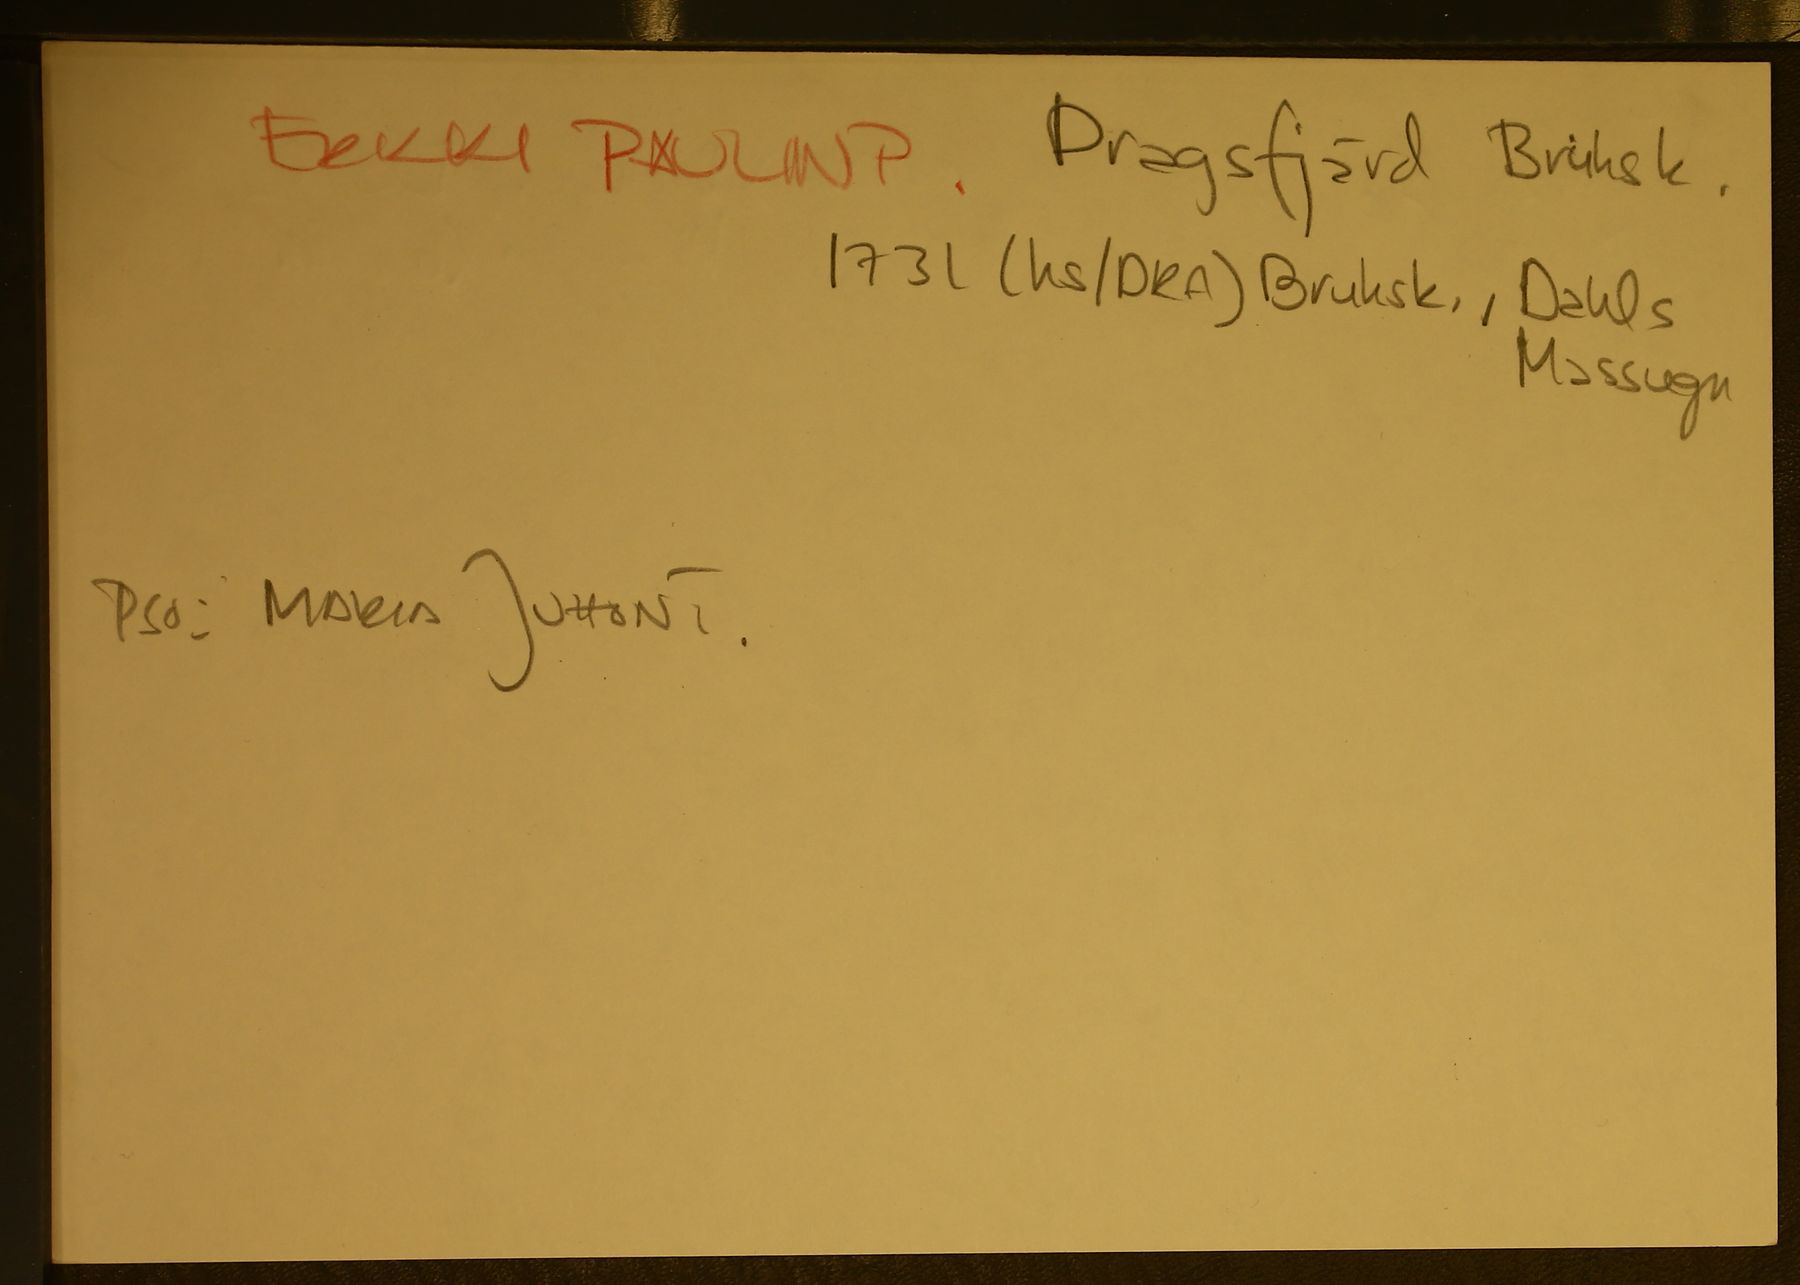 ERKKI PAULINP. Dragsfjärd Bruksk.
1731 (ks/DRA) Bruksk., Dahls
Massugn
Pso: MARIA JUHONT.